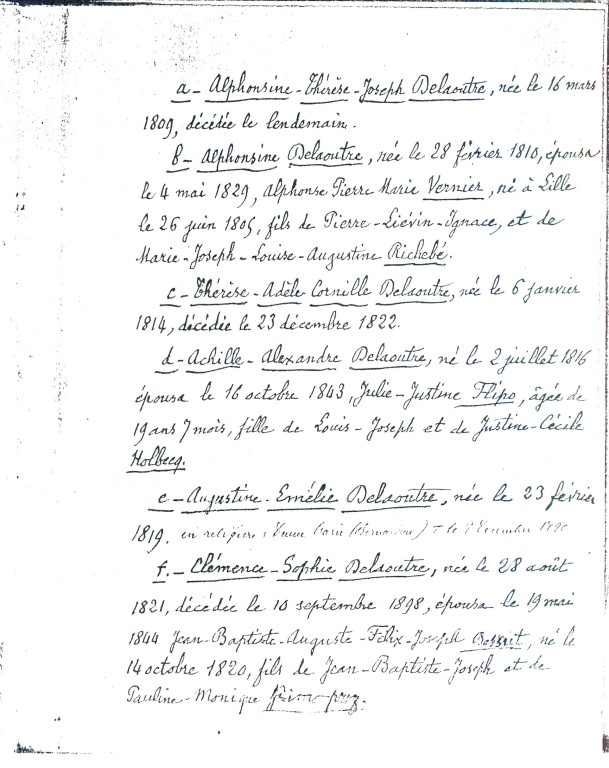 a - Alphonsine - Thérèse - Joseph Delsoutre, née le 16 mars
1809, décédée le lendemain.
B - Alphonsine Delsoutre, née le 28 février 1810, épousa
le 4 mai 1829, Alphonse Pierre Marie Vernier, né à Lille
le 26 juin 1805, fils de Pierre - Liévin - Ignace, et de
Marie - Joseph - Louise - Augustine Richebé.
c - Thérèse - Adèle Cornille Delsoutre, née le 6 janvier
1814, décédée le 23 décembre 1822.
d - Achille - Alexandre Delsoutre, né le 2 juillet 1816
épousa le 16 octobre 1843, Julie - Justine Flipo, âgée de
19 ans 7 mois, fille de Louis - Joseph et de Justine - Cécile
Holbecq.
e - Augustine - Emélie Delsoutre, née le 23 février
1819. en
f. - Clémence - Sophie Delsoutre, née le 28 août
1821, décédée le 10 septembre 1898, épousa le 19 mai
1844 Jean - Baptiste - Auguste - Félix - Joseph né le
14 octobre 1820, fils de Jean - Baptiste - Joseph et de
Pauline - Monique